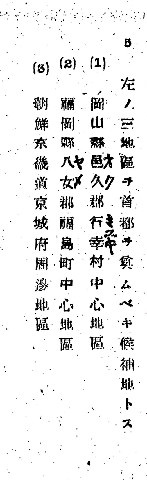 B 左ノ三地區ヲ首都ヲ奠ムベキ候補地トス
(1) 岡山縣邑久郡行幸村中心地區
オク
ミユキ
(2) 福岡縣八女郡福島町中心地區
ヤメ
(3) 朝鮮京畿道京城府
地區